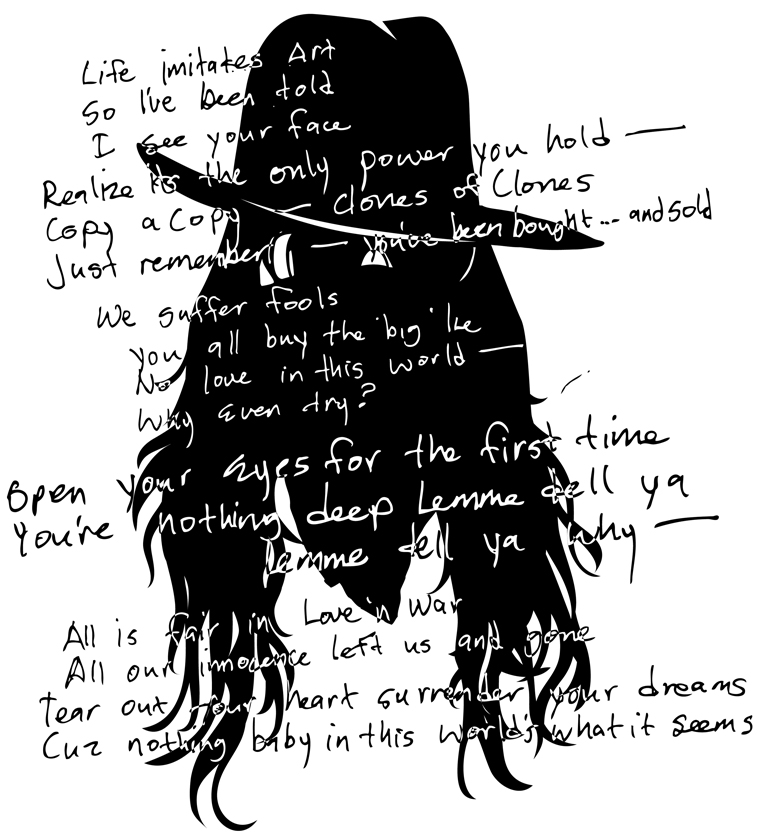 Life imitates Art
So I've been told
I see your face
Realize its the only power you hold —
Copy a Copy — clones of Clones
Just remember — you've been bought... and sold
We suffer fools
you all buy the 'big' lie
No love in this world —
Why even try?
Open your eyes for the first time
You're nothing deep Lemme tell ya
lemme tell ya why —
All is fair in Love 'n War
All our innocence left us and gone
Tear out your heart surrender your dreams
Cuz nothing baby in this world's what it seems